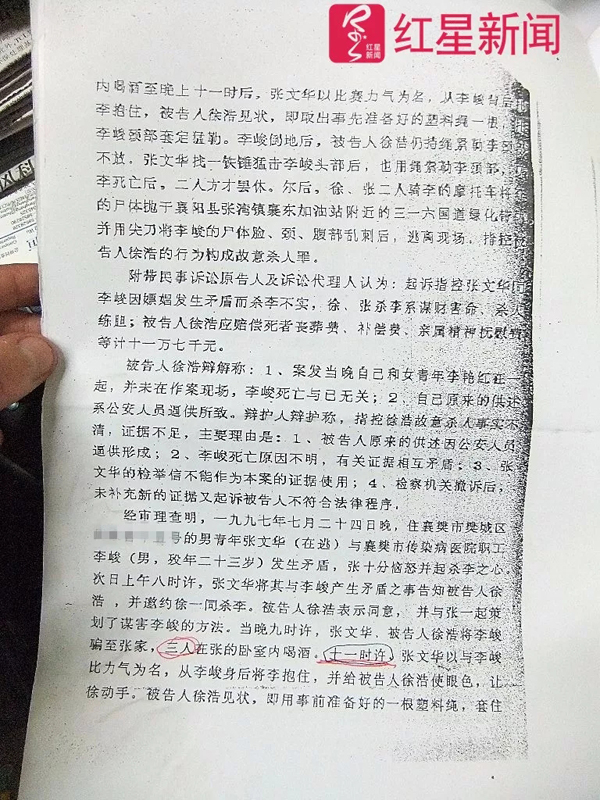 红星新闻
红星新闻
内喝酒至晚上十一时后，张文华以比赛力气为名，从李峻背后
李抱住，被告人徐浩见状，即取出事先准备好的塑料绳一根，
李峻颈部套定猛勒。李峻倒地后，被告人徐浩仍持绳索勒李颈
不放。张文华找一铁锤猛击李峻头部后，也用绳索勒李颈部，
李死亡后，二人方才罢休。尔后，徐、张二人骑李的摩托车将
的尸体抛于襄阳县张湾镇襄东加油站附近的三一六国道绿化带
并用尖刀将李峻的尸体脸、颈、腹部乱刺后，逃离现场。指控
告人徐浩的行为构成故意杀人罪。
附带民事诉讼原告人及诉讼代理人认为：起诉指控张文华
李峻因嫖娼发生矛盾而杀李不实，徐、张杀李系谋财害命、杀人
练胆；被告人徐浩应赔偿死者丧葬费、补偿费、亲属精神抚慰费
等计十一万七千元。
被告人徐浩辩解称：1、案发当晚自己和女青年李艳红在一
起，并未在作案现场，李峻死亡与己无关；2、自己原来的供述
系公安人员逼供所致。辩护人辩护称，指控徐浩故意杀人事实不
清，证据不足，主要理由是：1、被告人原来的供述因公安人员
逼供形成；2、李峻死亡原因不明，有关证据相互矛盾；3、张
文华的检举信不能作为本案的证据使用；4、检察机关撤诉后，
未补充新的证据又起诉被告人不符合法律程序。
经审理查明，一九九七年七月二十四日晚，住襄樊市樊城区
号的男青年张文华（在逃）与襄樊市传染病医院职工
李峻（男，殁年二十三岁）发生矛盾，张十分愤怒并起杀李之心
次日上午八时许，张文华将其与李峻产生矛盾之事告知被告人徐
浩，并邀约徐一同杀李。被告人徐浩表示同意，并与张一起策
划了谋害李峻的方法。当晚九时许，张文华、被告人徐浩将李峻
骗至张家，三人在张的卧室内喝酒。十一时许，张文华以与李峻
比力气为名，从李峻身后将李抱住，并给被告人徐浩使眼色，让
徐动手。被告人徐浩见状，即用事前准备好的一根塑料绳，套住